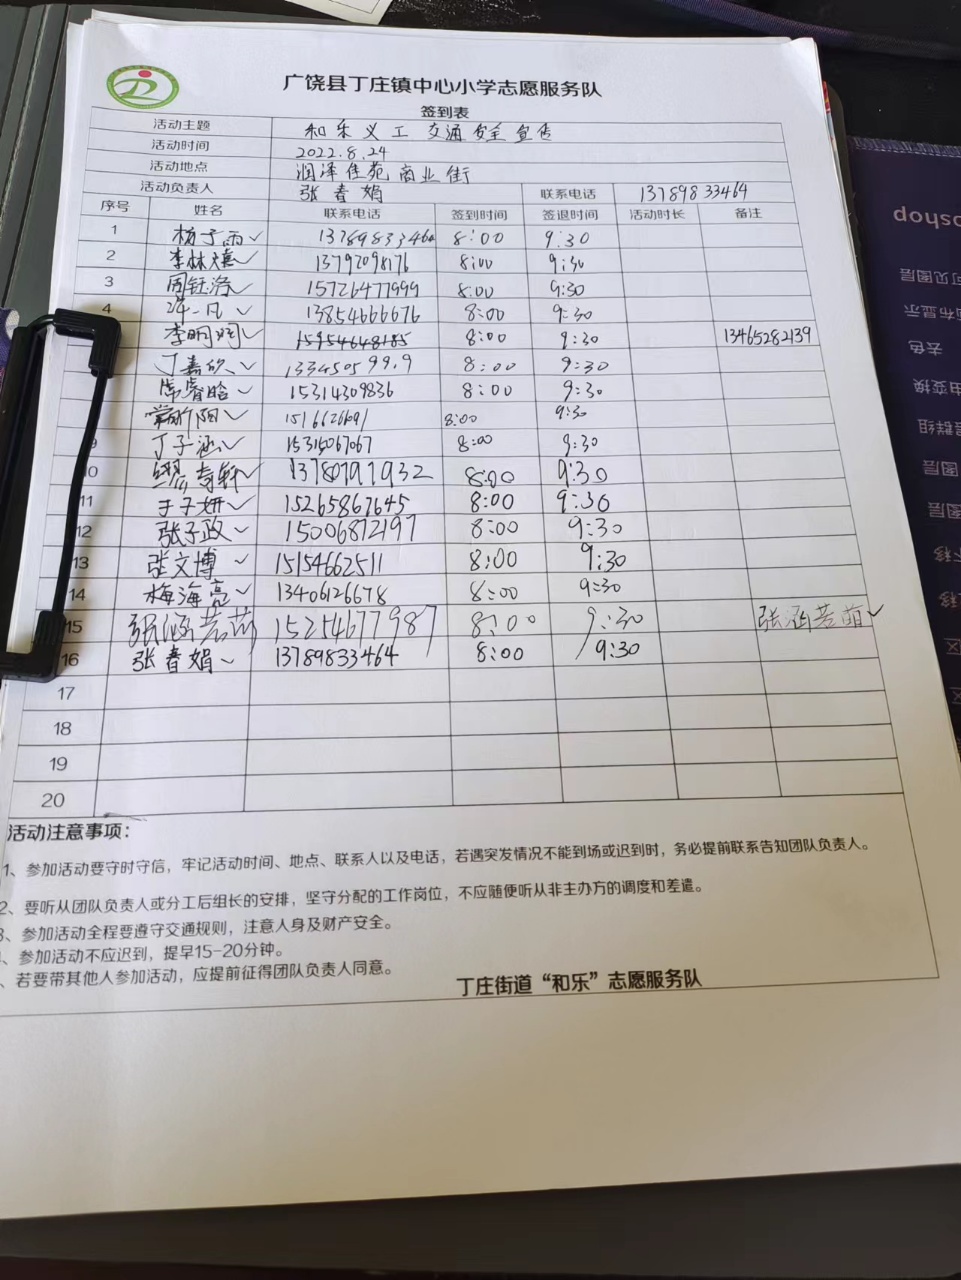 广饶县丁庄镇中心小学志愿服务队
签到表
活动主题 和乐义工 交通安全宣传
活动时间 2022.8.24
活动地点 润泽佳苑商业街
活动负责人 张春娟 联系电话 13789833464
序号 姓名 联系电话 签到时间 签退时间 活动时长 备注
1 杨子雨 1378983346 8:00 9:30
2 李林 13792098176 8:00 9:30
3 周钰 15726477999 8:00 9:30
4 一凡 13854666676 8:00 9:30
李明 15954648185 8:00 9:30 13465282139
丁嘉欣 8:00 9:30
席睿晗 15314309836 8:00 9:30
阳 8:00 9:30
9 丁子涵 15315067067 8:00 9:30
10 13780797932 8:00 9:30
11 于子妍 15265867645 8:00 9:30
12 张子政 15006872197 8:00 9:30
13 张文博 15154662511 8:00 9:30
14 梅海亮 13406126678 8:00 9:30
15 张涵若萌 15254677987 8:00 9:30 张涵若萌
16 张春娟 13789833464 8:00 9:30
17
18
19
20
活动注意事项：
1、参加活动要守时守信，牢记活动时间、地点、联系人以及电话，若遇突发情况不能到场或迟到时，务必提前联系告知团队负责人。
2、要听从团队负责人或分工后组长的安排，坚守分配的工作岗位，不应随便听从非主办方的调度和差遣。
3、参加活动全程要遵守交通规则，注意人身及财产安全。
、参加活动不应迟到，提早15-20分钟。
、若要带其他人参加活动，应提前征得团队负责人同意。
丁庄街道“和乐”志愿服务队